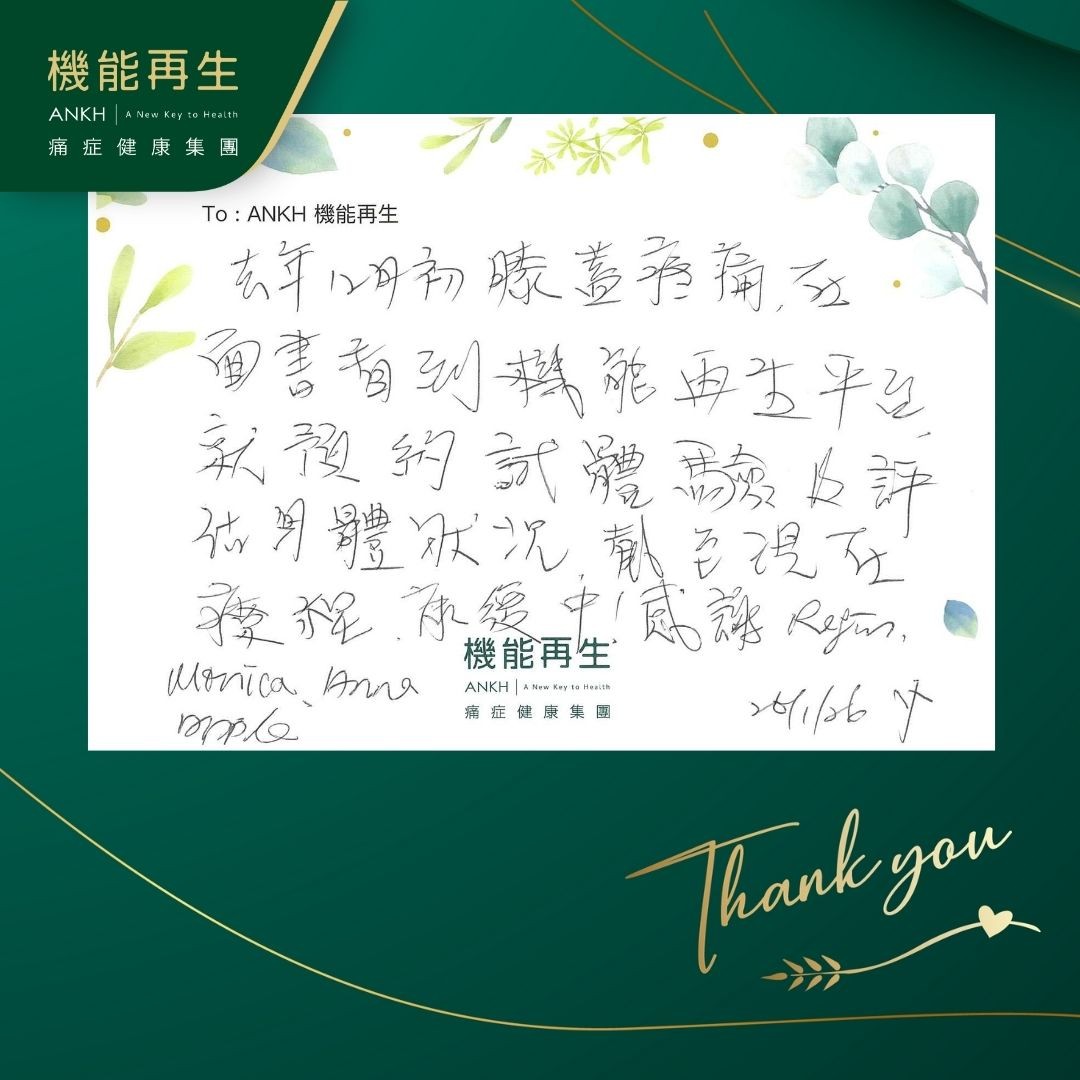 機能再生
ANKH | A New Key to Health
痛症健康集團
To : ANKH 機能再生
去年12月初膝蓋疼痛,在
面書看到機能再生平台,
就預約試體驗及評
估身體狀況,截至現在
療程.康復中!感謝
Monica、Anna
Apple
機能再生
ANKH | A New Key to Health
痛症健康集團
26/1/26
Thank you